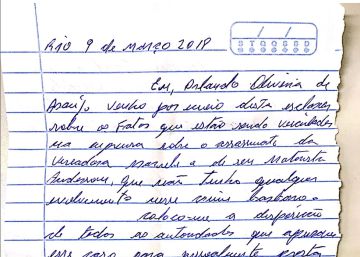 Rio 9 de março 2018
/ /
S T Q Q S S D
Eu, Orlando Oliveira de
Araújo venho por meio desta esclarecer
sobre os Fatos que estão sendo veiculados
na imprensa sobre o assassinato da
Vereadora Marielle e de seu Motorista
Anderson, que não tenho qualquer
envolvimento nesse crime bárbaro.
coloco-me a disposição
de todos as autoridades que
esse caso para